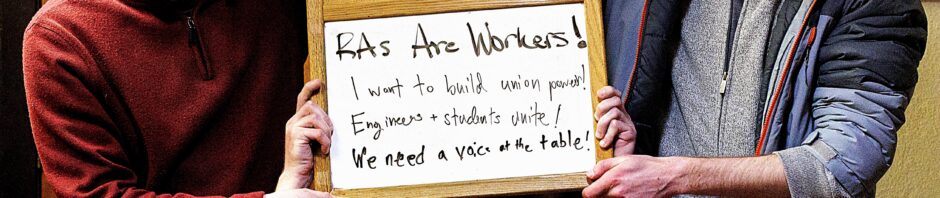 RAs Are Workers!
I want to build union power!
Engineers + students unite!
We need a voice at the table!